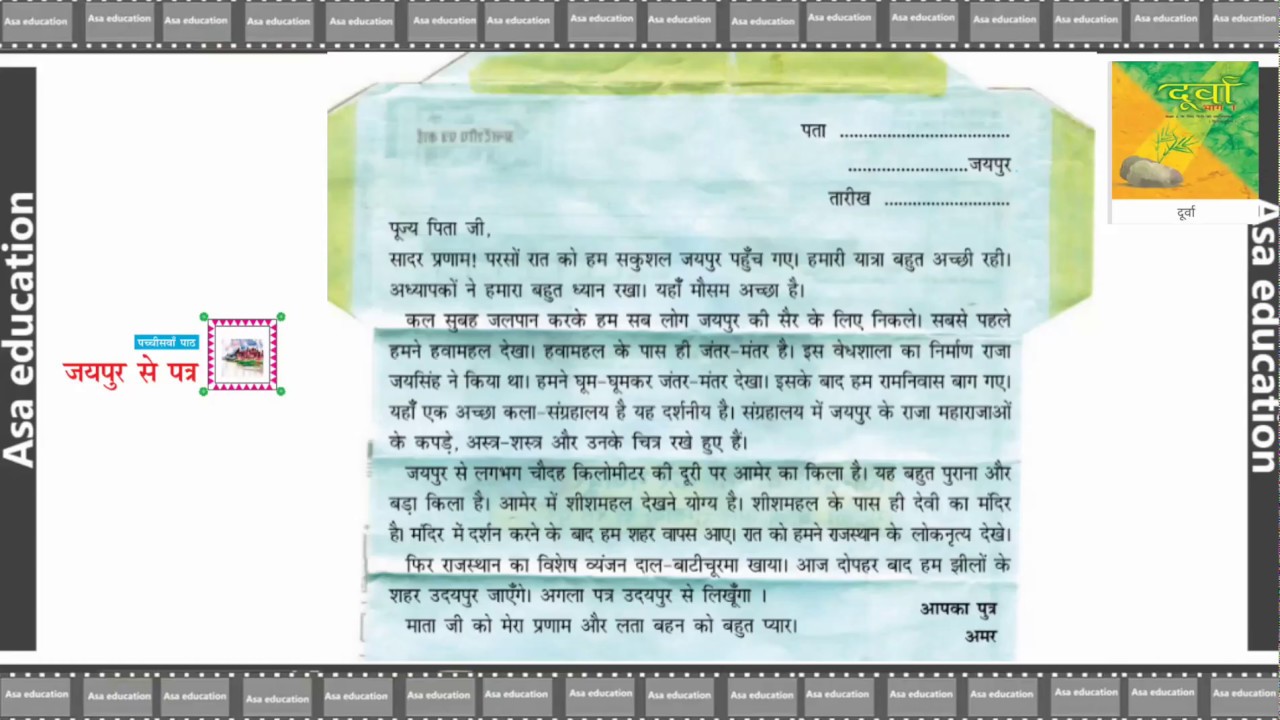 Asa education Asa education Asa education Asa education Asa education Asa education Asa education Asa education Asa education Asa education Asa education Asa education Asa education Asa education Asa education Asa education
Asa education
पच्चीसवाँ पाठ
जयपुर से पत्र
पता ....................................
..........................जयपुर
तारीख ...........................
पूज्य पिता जी,
सादर प्रणाम! परसों रात को हम सकुशल जयपुर पहुँच गए। हमारी यात्रा बहुत अच्छी रही।
अध्यापकों ने हमारा बहुत ध्यान रखा। यहाँ मौसम अच्छा है।
कल सुबह जलपान करके हम सब लोग जयपुर की सैर के लिए निकले। सबसे पहले
हमने हवामहल देखा। हवामहल के पास ही जंतर-मंतर है। इस वेधशाला का निर्माण राजा
जयसिंह ने किया था। हमने घूम-घूमकर जंतर-मंतर देखा। इसके बाद हम रामनिवास बाग गए।
यहाँ एक अच्छा कला-संग्रहालय है यह दर्शनीय है। संग्रहालय में जयपुर के राजा महाराजाओं
के कपड़े, अस्त्र-शस्त्र और उनके चित्र रखे हुए हैं।
जयपुर से लगभग चौदह किलोमीटर की दूरी पर आमेर का किला है। यह बहुत पुराना और
बड़ा किला है। आमेर में शीशमहल देखने योग्य है। शीशमहल के पास ही देवी का मंदिर
है। मंदिर में दर्शन करने के बाद हम शहर वापस आए। रात को हमने राजस्थान के लोकनृत्य देखे।
फिर राजस्थान का विशेष व्यंजन दाल-बाटीचूरमा खाया। आज दोपहर बाद हम झीलों के
शहर उदयपुर जाएँगे। अगला पत्र उदयपुर से लिखूँगा ।
माता जी को मेरा प्रणाम और लता बहन को बहुत प्यार।
आपका पुत्र
अमर
दूर्वा
भाग 1
दूर्वा
Asa education
Asa education Asa education Asa education Asa education Asa education Asa education Asa education Asa education Asa education Asa education Asa education Asa education Asa education Asa education Asa education Asa education